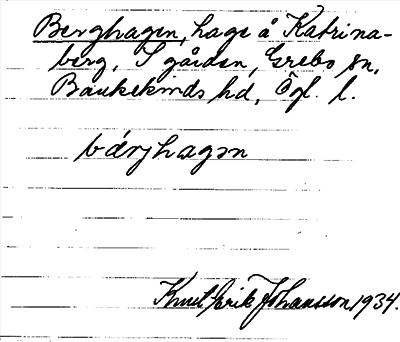 Berghagen, hage å Katrina-
berg, S gården, Grebo sn,
Bankekinds hd, Ögl. l.
bárjhagən
Knut Erik Johansson 1934.